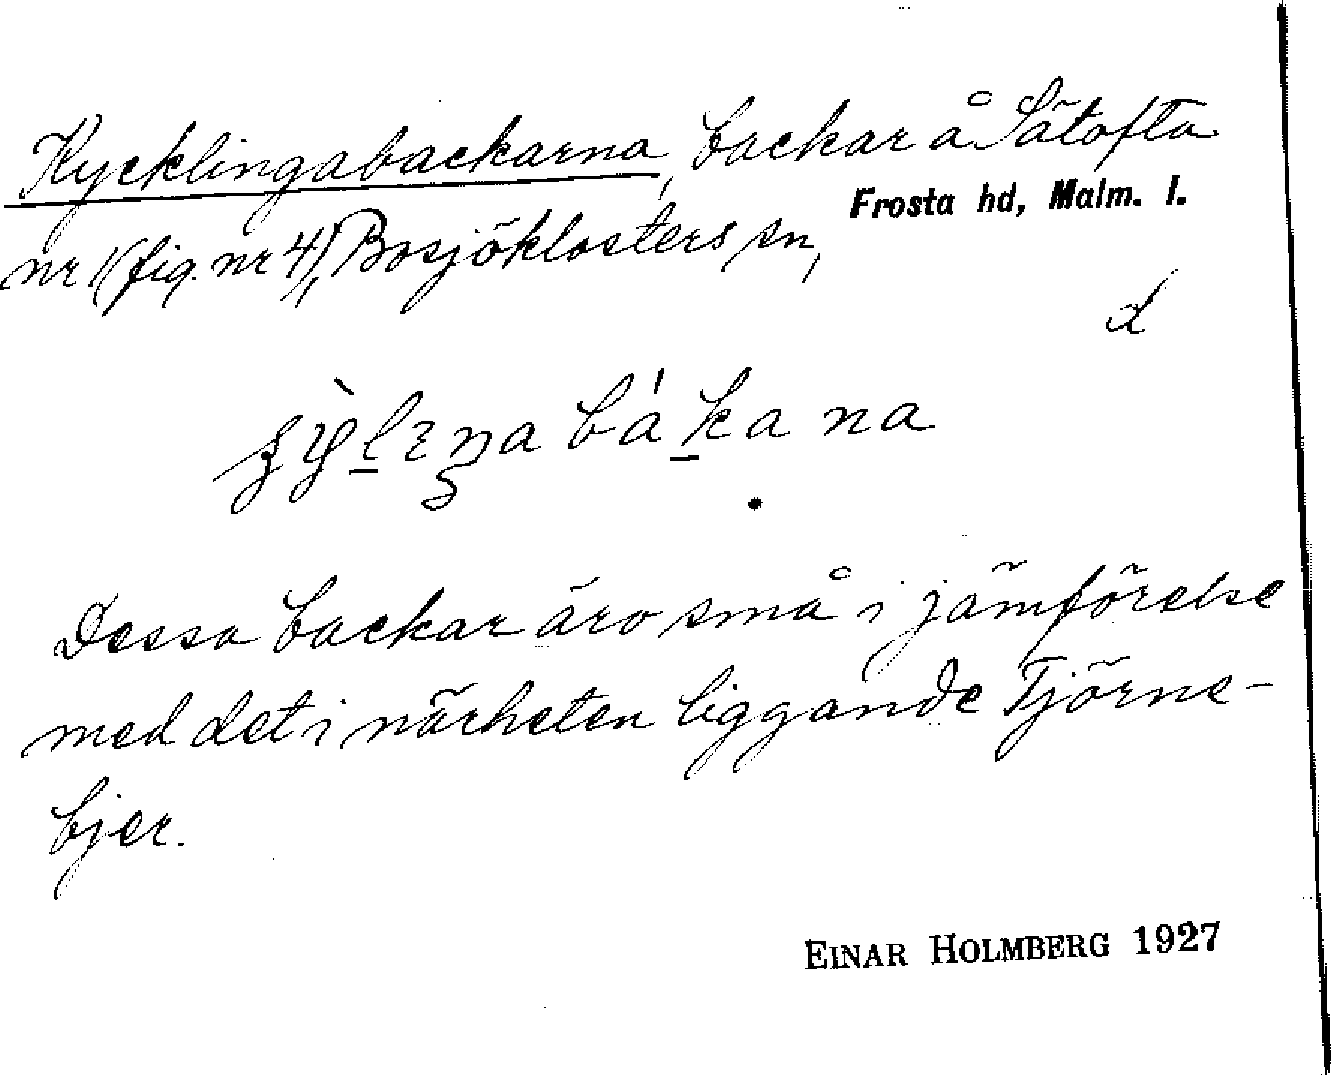 Kycklingabackarna, backar å Sätofta
Frosta hd, Malm. l.
nr 1 (fig. nr 4), Bosjöklosters sn,
d
Dessa backar äro små i jämförelse
med det i närheten liggande Tjörne-
bjer.
EINAR HOLMBERG 1927